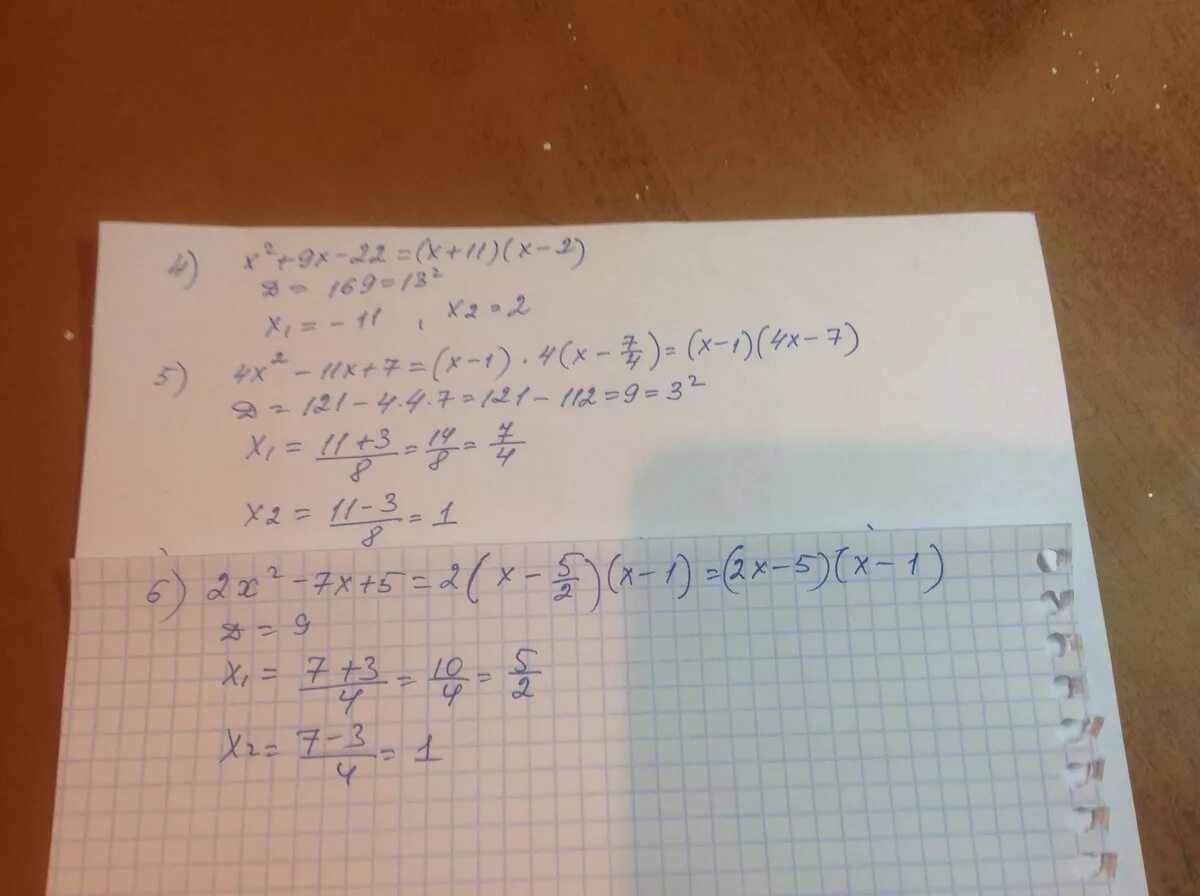 4) x²+9x-22=(x+11)(x-2)
D = 169=13²
x₁ = -11 , x2 = 2
5) 4x² - 11x+7 = (x-1) · 4(x - 7/4) = (x-1)(4x-7)
D = 121-4·4·7=121-112=9=3²
x₁ = (11+3)/8 = 14/8 = 7/4
x2 = (11-3)/8 = 1
6) 2x² - 7x+5=2(x - 5/2)(x-1)=(2x-5)(x-1)
D = 9
x₁ = (7+3)/4 = 10/4 = 5/2
x2 = (7-3)/4 = 1